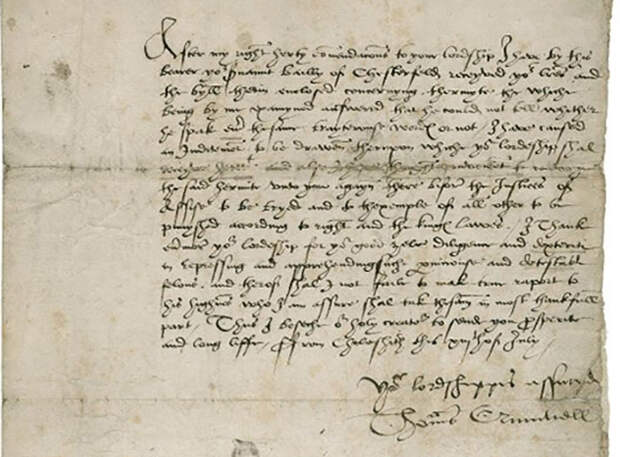 After my right herty comendacions to your lordship I have by this
berer yor servaunt bailly of Chesterfeld, receyved yor lres and
the byll therin enclosed concernyng thermyte the whiche
being by me examyned answered that he could not tell whether
he spak ever the same trayterouse wordes or not / I have caused
an Inditemt to be drawen therupon whiche yor lordeship shal
receyve herewt. and also I
the said hermite unto you agayn there bifore the Justices of
Assise to be tryed and to thexemple of all other to be
punyshed according to right and the kinges lawes. I Thank
yor lordeship for yor good zele diligence and dexterite
in repressing and apprehending suche and detestable
felons. and therof shal I not faile to make true raport to
his highnes who I am assure shal take the same in most thankfull
part. Thus I beseche or holy creator to send you prosperite
and long liffe, From Chelsehith this July
Yor lordshippis assuryd
Thomas Crumwell